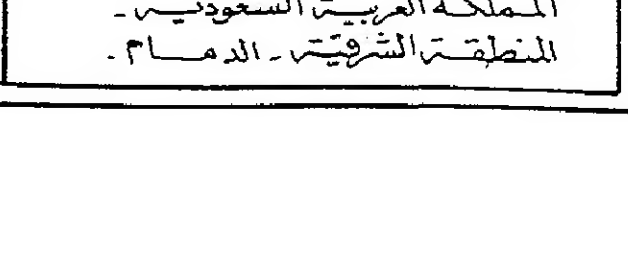 المملكة العربية السعودية -
المنطقة الشرقية - الدمام .